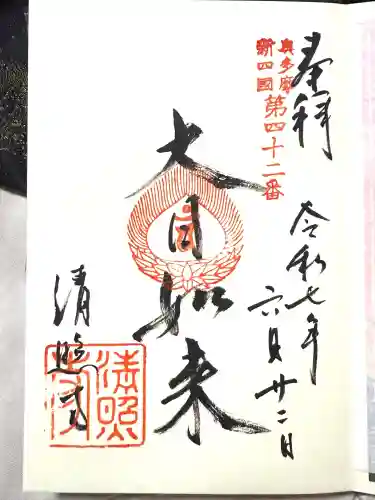 奉拝
奥多摩
新四国
第四十二番
令和七年
六月廿二日
大日如来
清照寺
清照寺